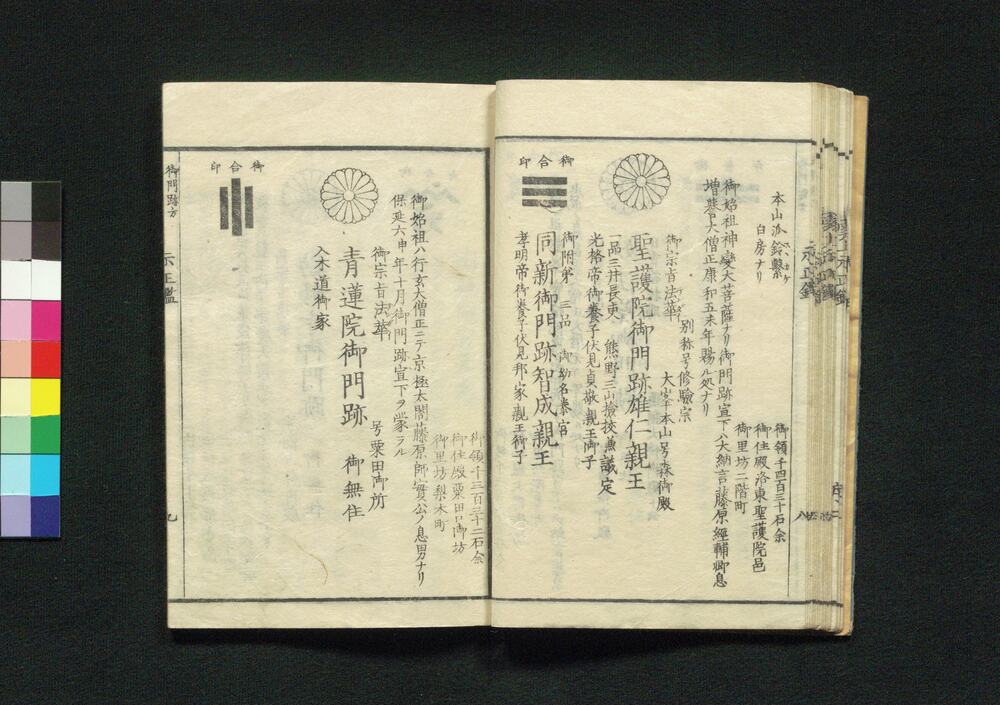 本山派鈴繋
白房ナリ
御領千四百三十石余
御住殿洛東聖護院邑
御里坊二階町
御始祖神變大菩薩ナリ御門跡宣下ハ大納言藤原經輔卿息
増誉大僧正康和五未年賜ル処ナリ
別称号修驗宗
御宗旨法華
大峯本山号森御殿
聖護院御門跡雄仁親王
一品三井長吏 熊野三山撿挍兼議定
光格帝御養子伏見貞敬親王御子
御附弟 三品 御幼名泰宮
同新御門跡智成親王
孝明帝御養子伏見邦家親王御子
御合印
御領千三百三十二石余
御住殿粟田口御坊
御里坊梨木町
御始祖ハ行玄大僧正ニテ京極太閤藤原師實公ノ息男ナリ
保延六申年十月御門跡宣下ヲ蒙ラル
御宗旨法華
号粟田御所
青蓮院御門跡 御無住
入木道御家
御合印
御門跡方
示正鑑
九